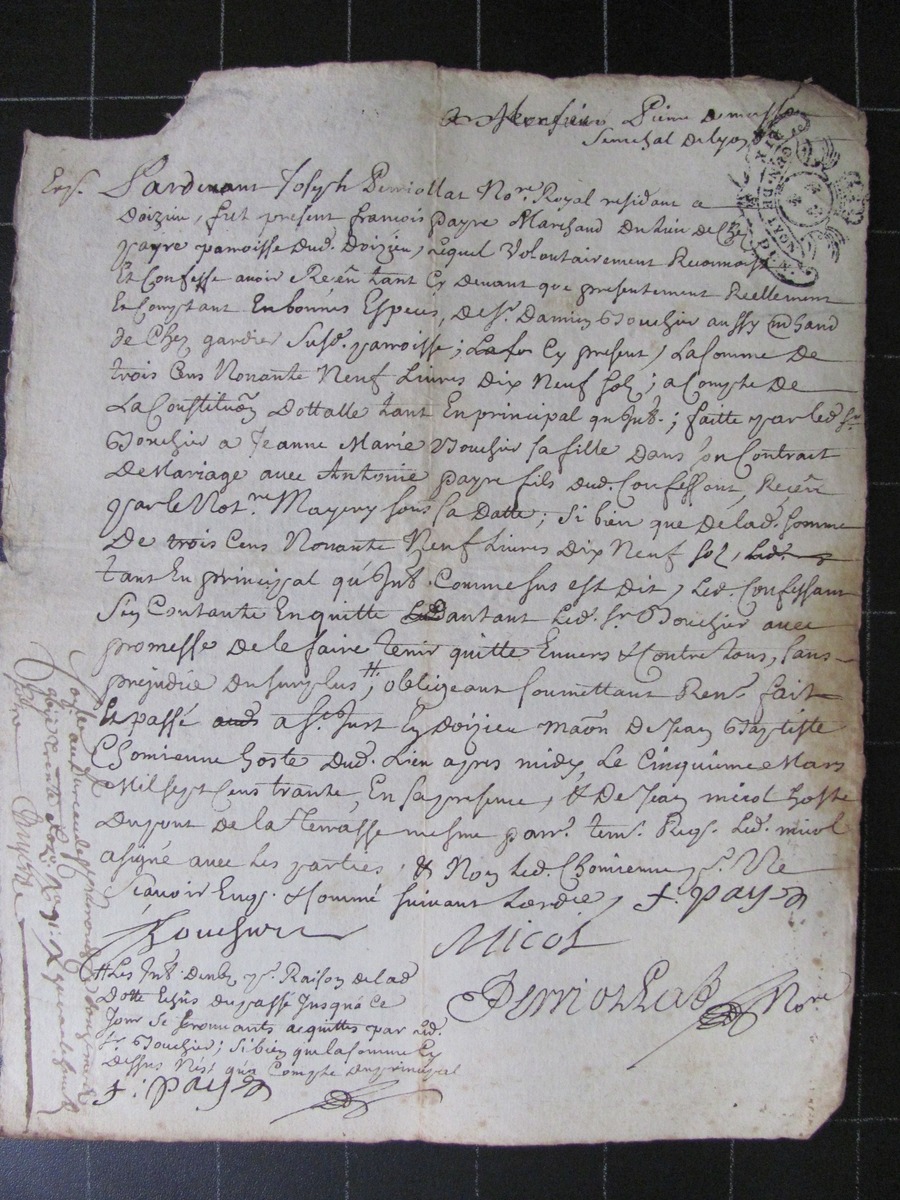 A Monsieur Pierre
Seneschal de Lyon
GEN. DE LYON
Exp.
Pardevant Joseph Perriollat No.re Royal residant a
Doizieu, fut present francois payre Marchand du lieu de Chez
payre parroisse dud. Doizieu, Lequel Volontairement Reconnoist
Et Confesse avoir Receu tant Cy devant que presentement Reellement
Et Comptant En bonnes Especes, de Sr. Damien Bouchir aussy mchand
de Chez gardier Susd. parroisse; Cy present, La somme de
trois Cens Nonante Neuf Livres Dix Neuf solz; a Compte de
La Constituõn Dottalle tant En principal qu'Int.; faitte par led. Sr.
Bouchir a Jeanne Marie Bouchir sa fille dans son Contract
De Mariage avec Antoine payre fils dud. Confessant, Receu
par le Not.re Mayery sous sa Datte; Si bien que De lad. somme
De trois Cens Nonante Neuf Livres Dix Neuf solz, Lad.
tant En principal qu'Int. Comme sus est Dit, Led. Confessant
Sen Contante En quitte dautant Led. Sr. Bouchir avec
promesse De le faire tenir quitte Envers & Contre tous, sans
prejudice du surplus #, obligeant soumettant Ren. fait
Et passé a St. Just En Doizieu maõn De Jean Baptiste
Chomienne hoste Dud. Lieu apres midy Le Cinquieme Mars
Mil sept Cens trante, En sa presence, & De Jean micol hoste
Du pont de la Terrasse mesme parr. tem. Req. Led. micol
a signé avec Les parties, & Non Led. Chomienne pr. Ne
Scavoir Enq. & sommé suivant Lordre, f. payre
Bouchir
Micol
Perriollat No.re
# Les Int. pr. Raison de lad.
Dotte Echus du passé Jusqua Ce
Jour Se trouvants acquittes par led.
Sr. Bouchir; Si bien que la somme Cy
Dessus N'est qu'a Compte du principal
f. payre